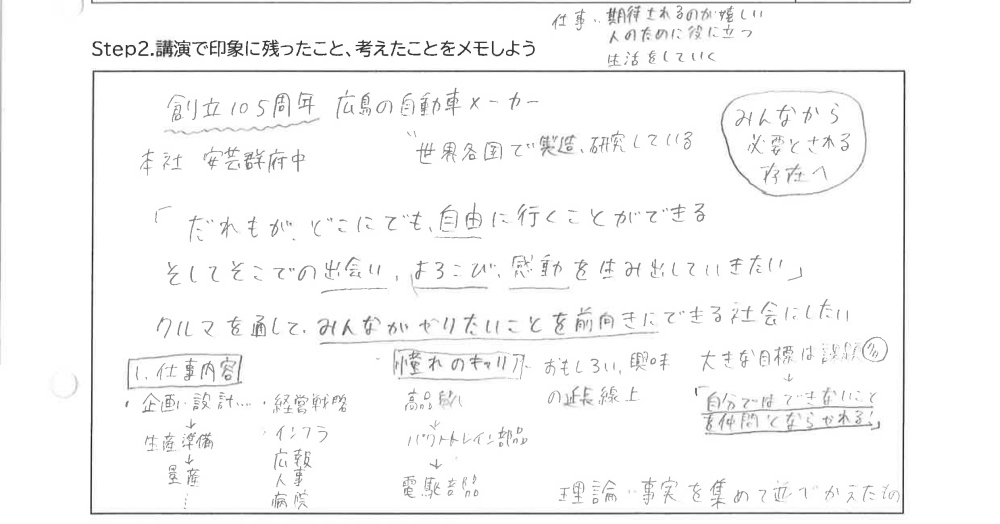 仕事‥期待されるのが嬉しい
人のために役に立つ
生活をしていく
Step2.講演で印象に残ったこと、考えたことをメモしよう
創立105周年 広島の自動車メーカー
みんなから
必要とされる
存在へ
本社 安芸群府中
世界各国で製造、研究している
「だれもが、どこにでも、自由に行くことができる
そしてそこでの出会い、よろこび、感動を生み出していきたい」
クルマを通して、みんながやりたいことを前向きにできる社会にしたい
1.仕事内容
・企画・設計…
↓
生産準備
↓
量産
・経営戦略
・インフラ
広報
人事
病院
憧れのキャリア
高品
↓
パワートレイン部品
↓
電駆部品
おもしろい、興味
の延長線上
大きな目標は 多
↓
「自分ではできないこと
を仲間とならかれる」
理論・事実を集めて